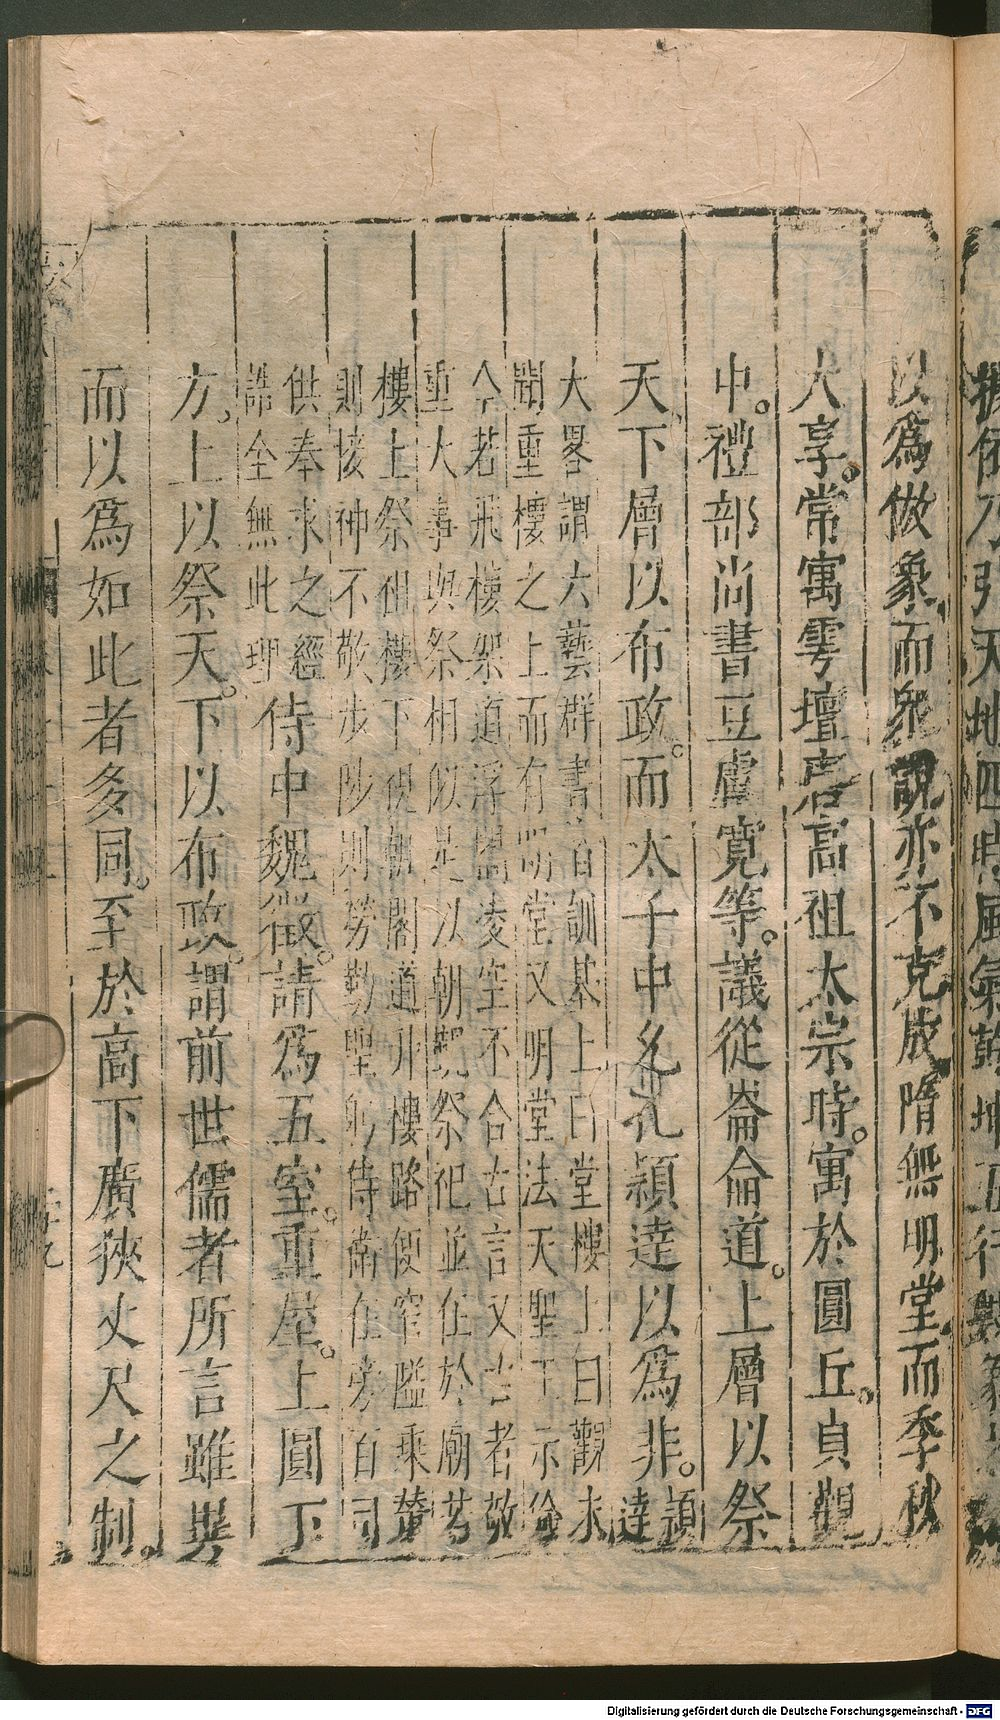 以為倣象而衆說亦不克成隋無明堂而季秋
大享。常寓雩壇唐高祖太宗時。寓於圓丘。貞觀
中。禮部尚書豆盧寬等。議從崙侖道。上層以祭
天。下層以布政。而太子中允孔穎達以為非。穎達
大畧謂六藝群書皆訓基上曰堂樓上曰觀未
聞重樓之上而有明堂又明堂法天聖王示儉
今若飛樓架道浮閣凌空不合古言又古者敬
重大事與祭相似是以朝覲祭祀並在於廟若
樓上祭祖樓下視朝閣道升樓路便窄隘乘輦
則接神不敬步陟則勞勤聖躬侍衛在旁百司
供奉求之經
誥全無此理侍中魏徵。請為五室。重屋。上圓下
方。上以祭天。下以布政。謂前世儒者所言雖異
而以為如此者多同。至於高下廣狹丈尺之制。
天地四時風氣
Digitalisierung gefördert durch die Deutsche Forschungsgemeinschaft - DFG